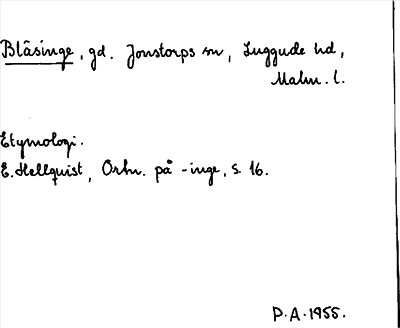 Blåsinge, gd. Jonstorps sn, Luggude hd,
Malm. l.
Etymologi.
E. Hellquist, Ortn. på -inge, s. 16.
P.A. 1955.